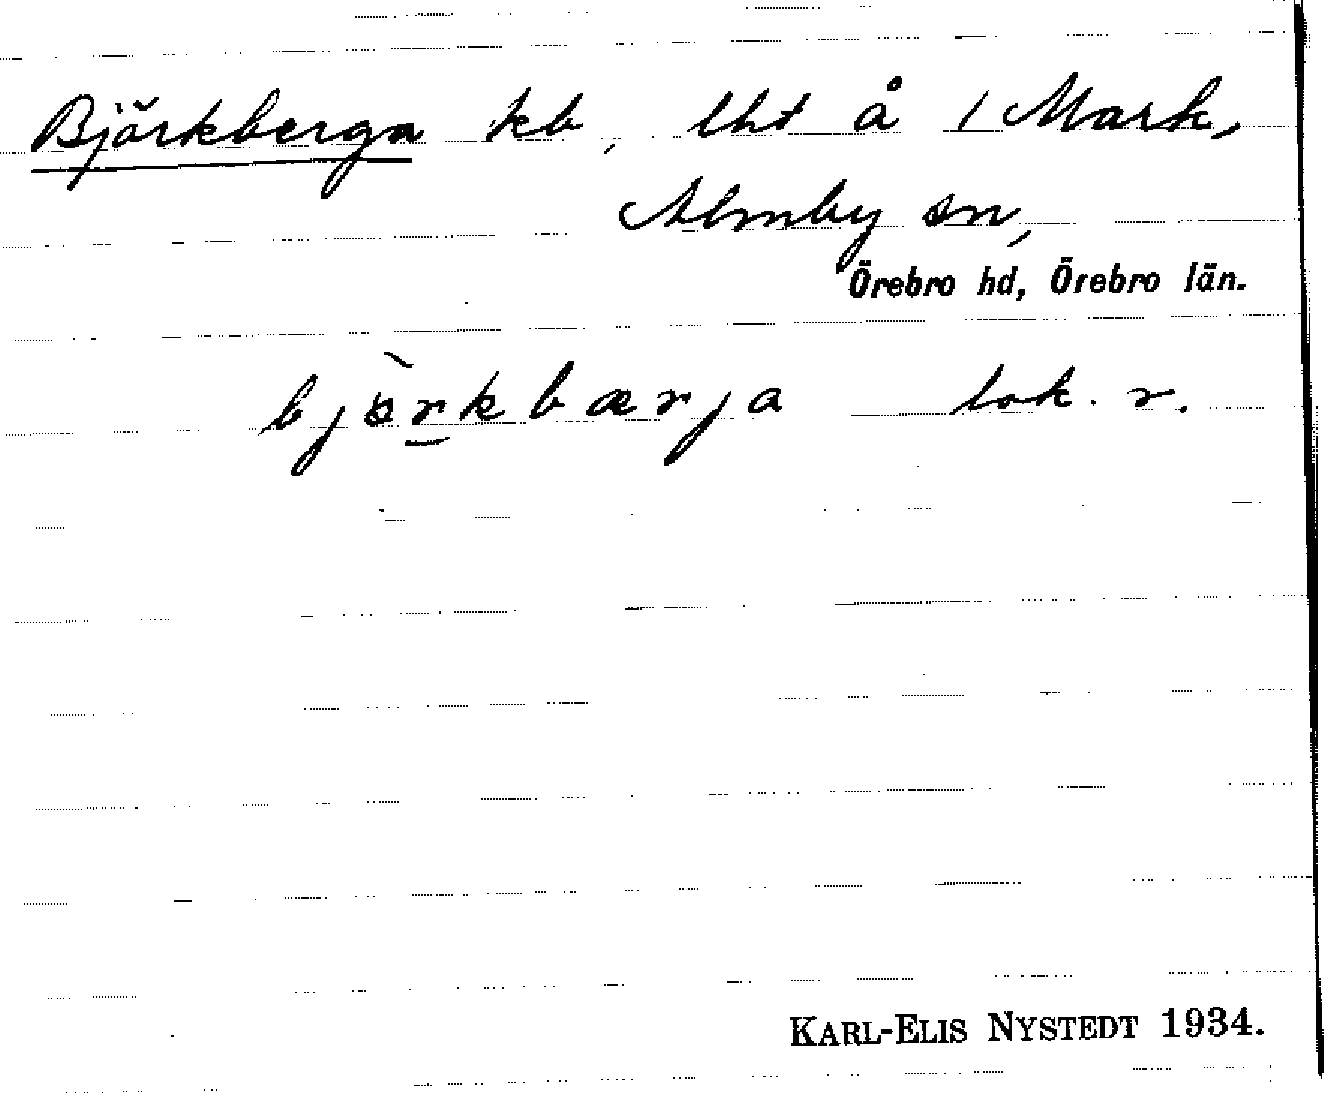 Björkberga kb, lht å 1 Mark,
Almby sn,
Örebro hd, Örebro län.
bjö̀r̲kbærja lok. r.
KARL-ELIS NYSTEDT 1934.